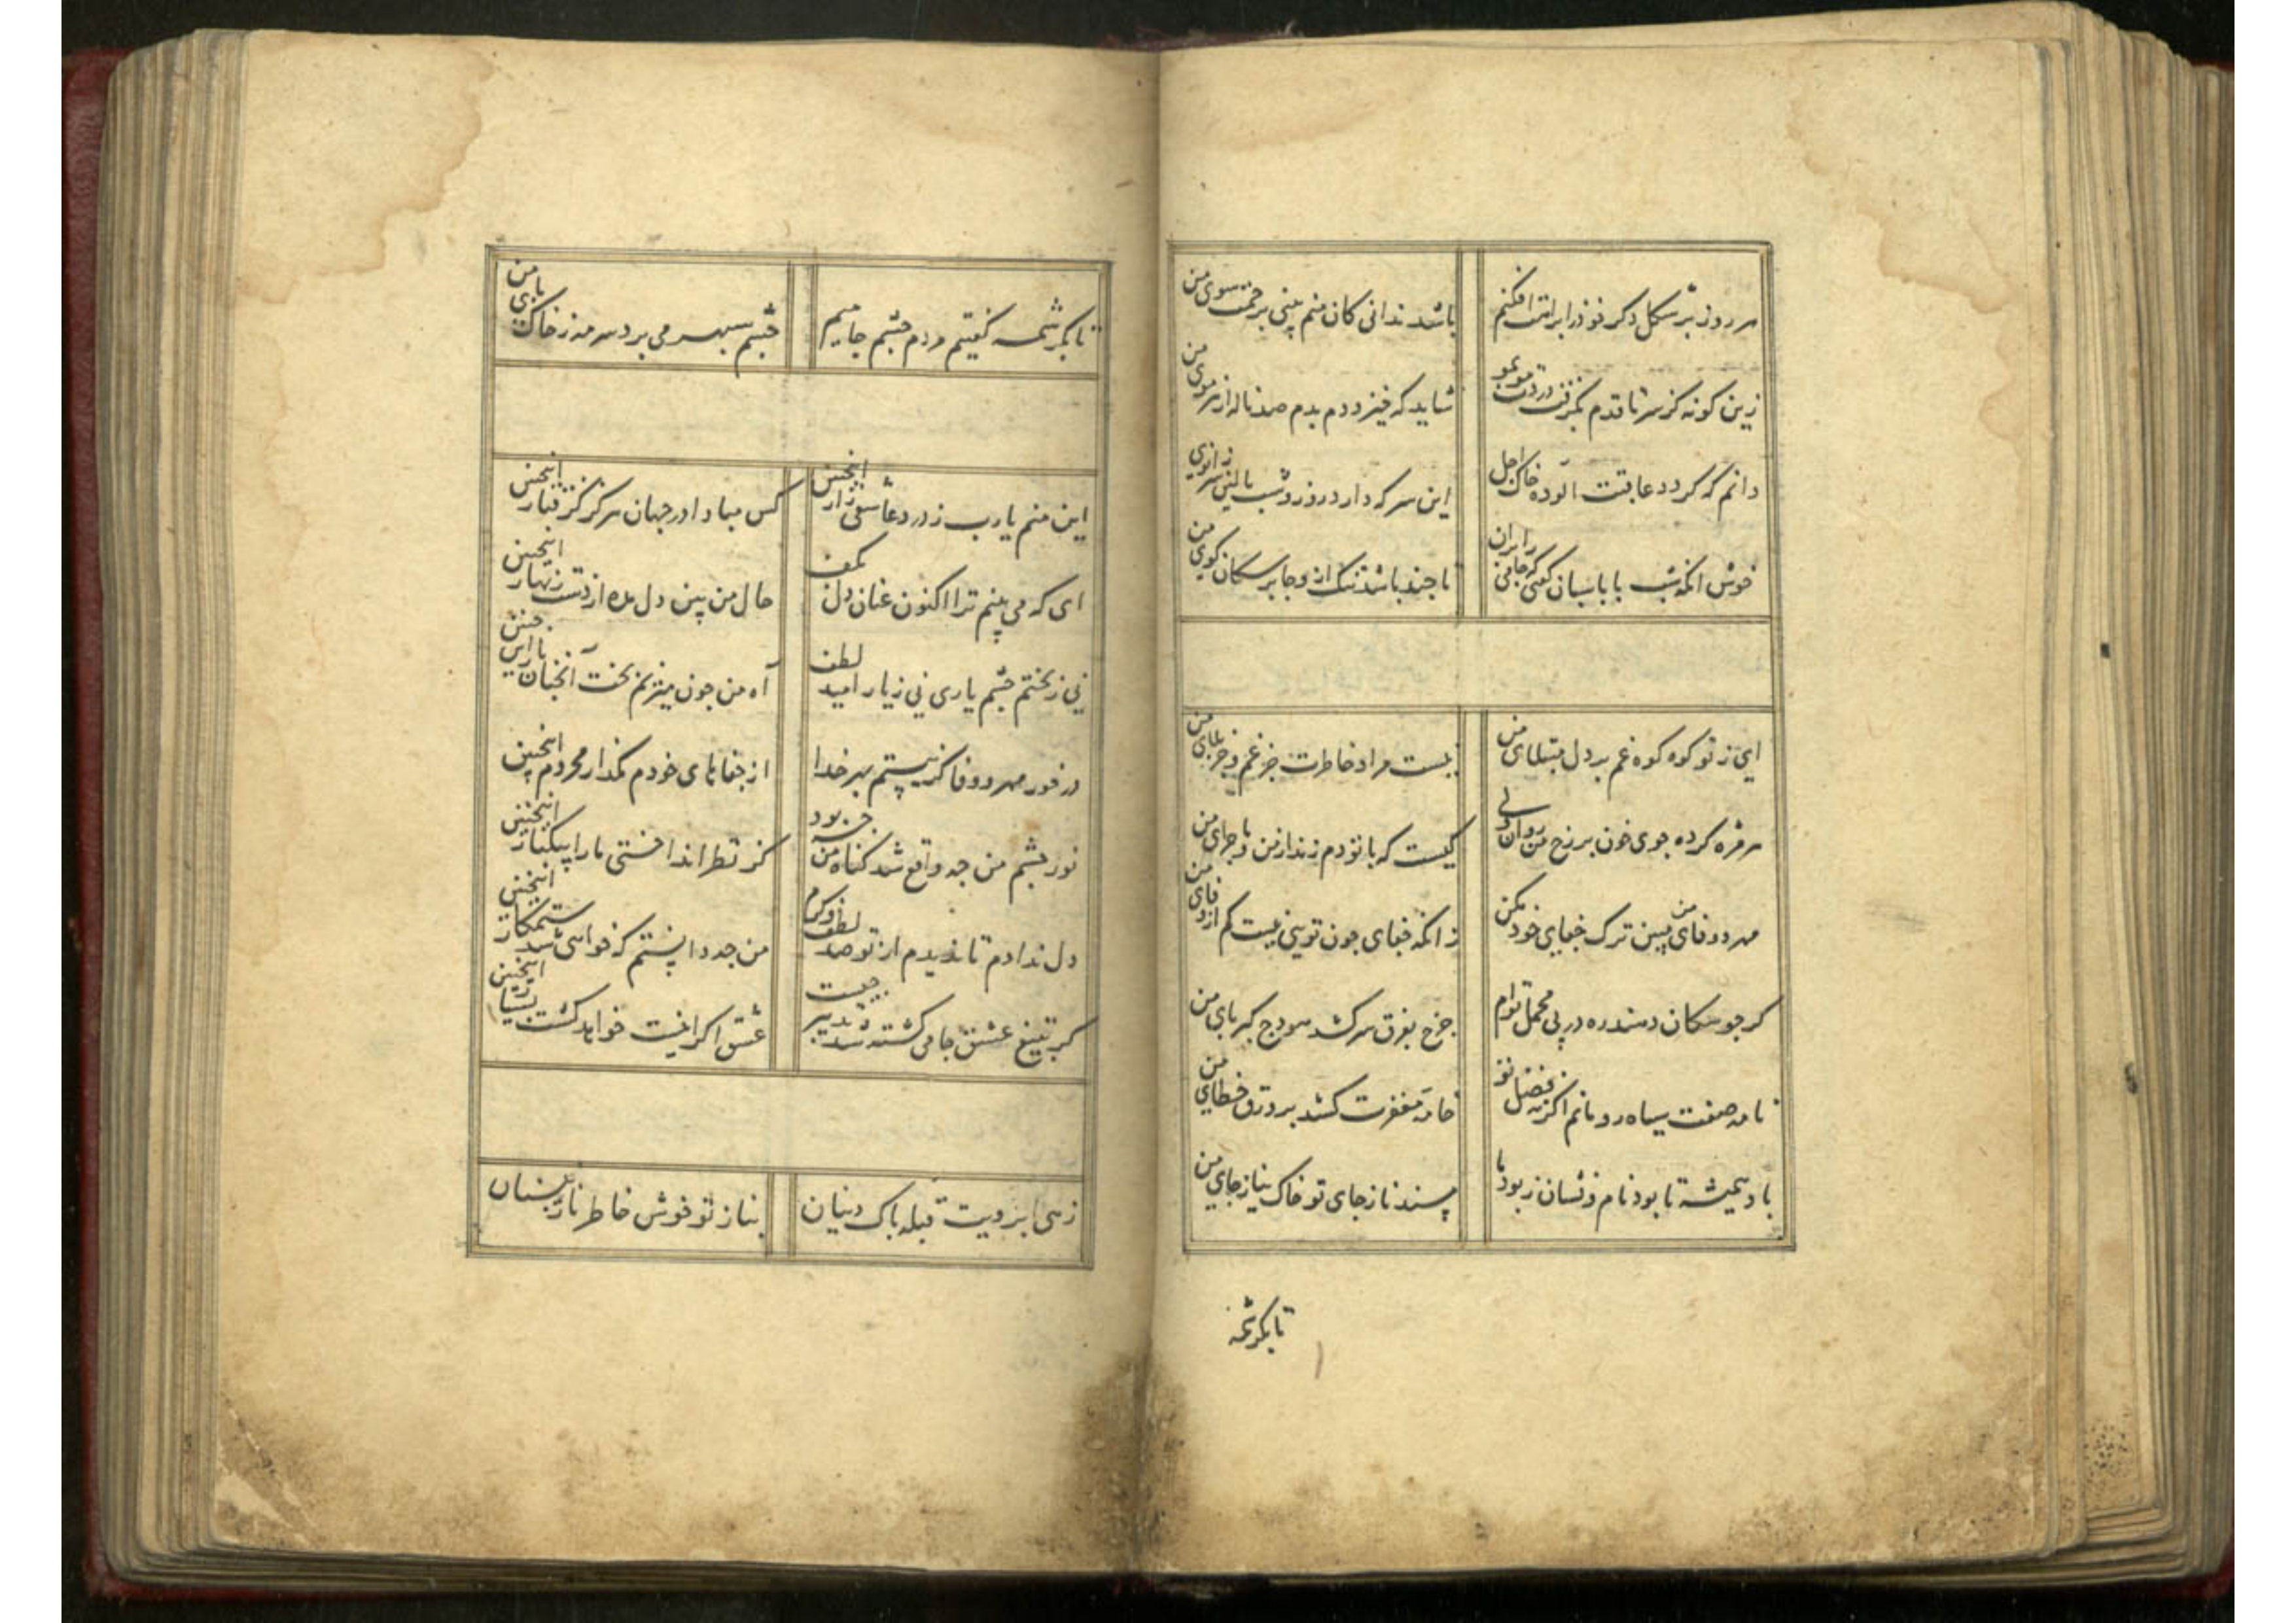 هر روز بر شکل دکر خود را براهت افکنم
باشد ندانی کان منم بینی برحمت سوی من
زین کونه کز سر تا قدم بکرفت دردت مو بمو
شاید که خیزد دم بدم صد ناله از هر موی من
دانم که کردد عاقبت آلوده خاک اجل
این سر که دارد روز و شب بالین سر زانوی من
خوش آنکه شب با پاسبان کفتی که جامی را بران
تا چند باشد تنک ازو جا بر سکان کوی من
ای ز تو کوه کوه غم بر دل مبتلای من
نیست مراد خاطرت جز غم و جز بلای من
هر مژه کرده جوی خون بر رخ من روان ولی
کیست که با تو دم زند از من و ماجرای من
مهر و وفای من ببین ترک جفای خود مکن
زانکه جفای چون تویی نیست کم از وفای من
کر چو سکان دهند ره در پی محمل توام
چرخ بفرق سر کشد هودج کبریای من
نامه صفت سیاه رو مانم اکر نه فضل تو
خامه مغفرت کشد بر ورق خطای من
باد همیشه تا بود نام و نشان ز بود ما
مسند ناز جای تو خاک نیاز جای من
تا بکرشمه
تا بکرشمه کفتیم مردم چشم جامیم
چشم سپهر می برد سرمه ز خاک پای من
این منم یارب ز درد عاشقی زار اینچنین
کس مبادا در جهان هرکز کرفتار اینچنین
ای که می بینم ترا اکنون عنان دل بکف
حال من بین دل مده از دست زنهار اینچنین
نی ز بختم چشم یاری نی ز یار امید لطف
آه من چون میزیم بخت آنچنان یار اینچنین
درخور مهر و وفا کر نیستم بهر خدا
از جفاهای خودم مکذار محروم اینچنین
نور چشم من چه واقع شد کناه من چه بود
کز نظر انداختی ما را بیکبار اینچنین
دل ندادم تا ندیدم از تو صد لطف و کرم
من چه دانستم که خواهی شد ستمکار اینچنین
کر بتیغ عشق جامی کشته شد تدبیر چیست
عشق اکر اینست خواهد کشت بسیار اینچنین
زهی ابرویت قبله پاک دینان
بناز تو خوش خاطر نازنینان